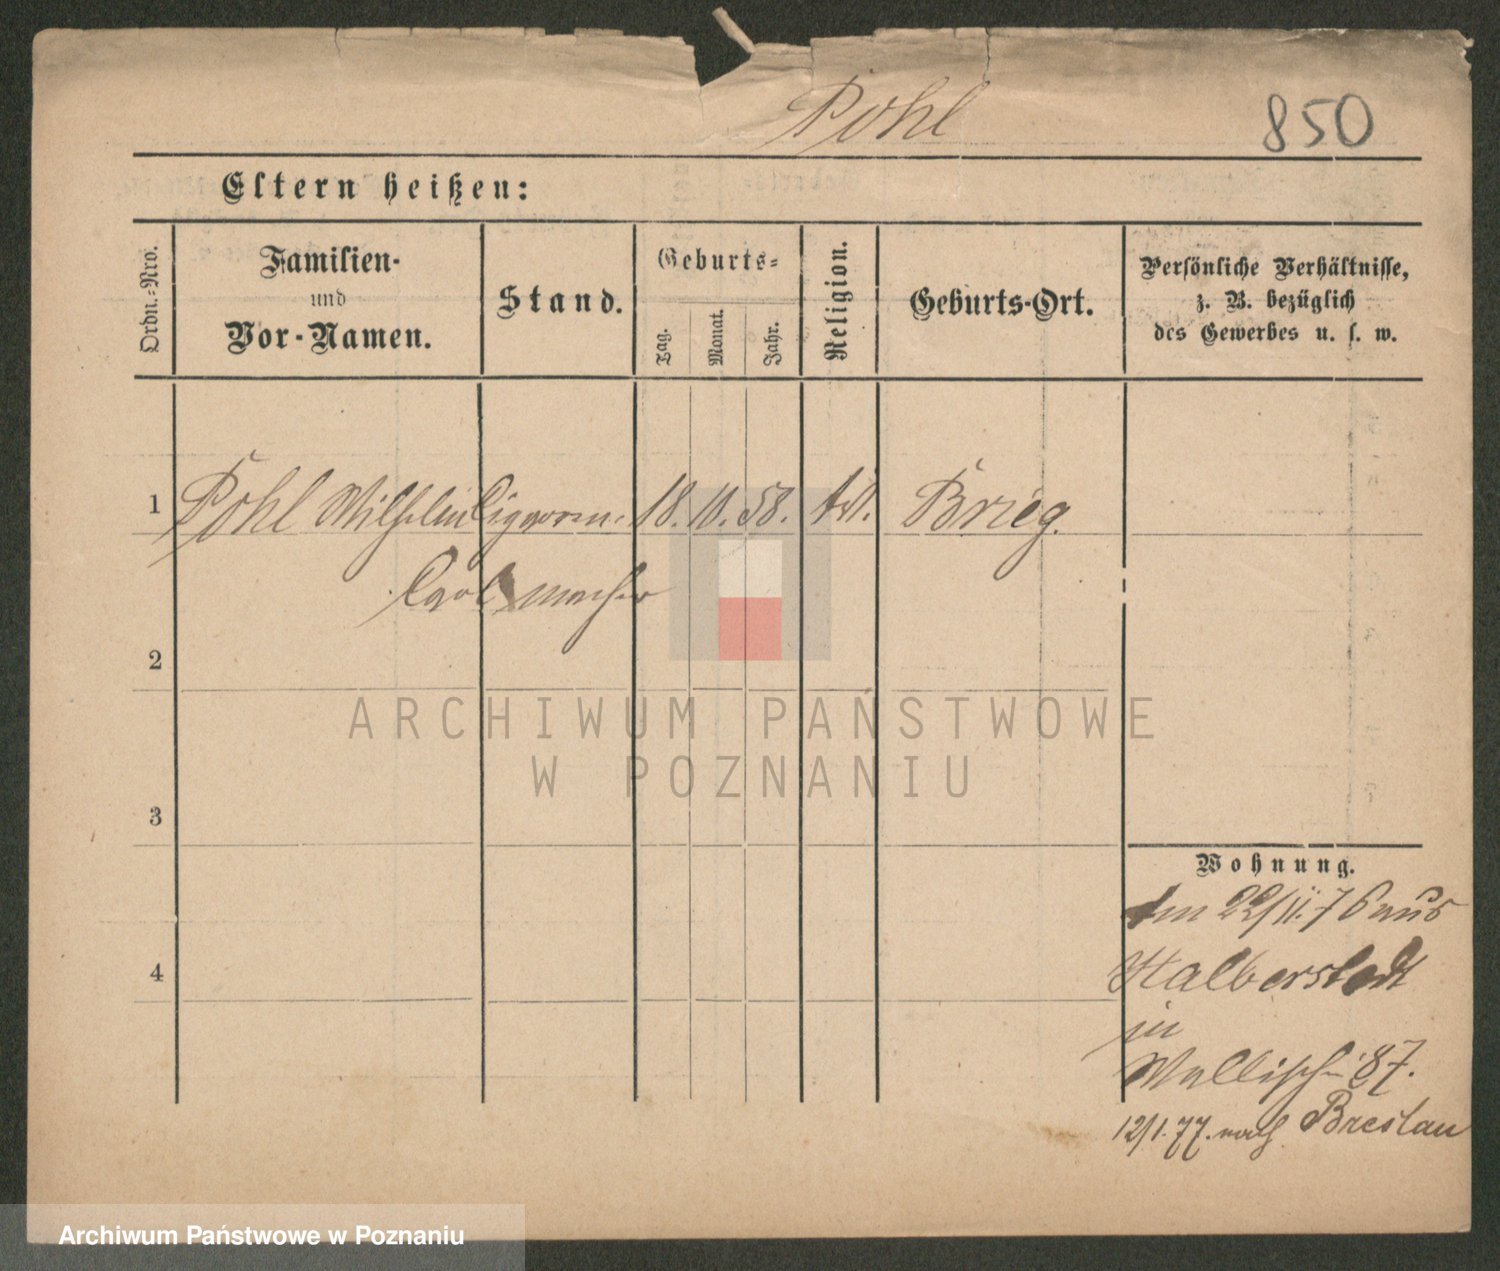 Pohl
850
Eltern heißen:
Ordn.-Nro.
Familien-
und
Vor-Namen.
Stand.
Geburts-
Tag.
Monat.
Jahr.
Religion.
Geburts-Ort.
Persönliche Verhältnisse,
z. B. bezüglich
des Gewerbes u. s. w.
1
Pohl Wilhelm Cigarrn- 18. 10. 58. Brieg.
Carl macher
2
3
4
Wohnung.
Am 22/11.76 aus
Halberstadt
in
Wallisch- 87.
12/1.77. nach Breslau
ARCHIWUM PAŃSTWOWE
W POZNANIU
Archiwum Państwowe w Poznaniu